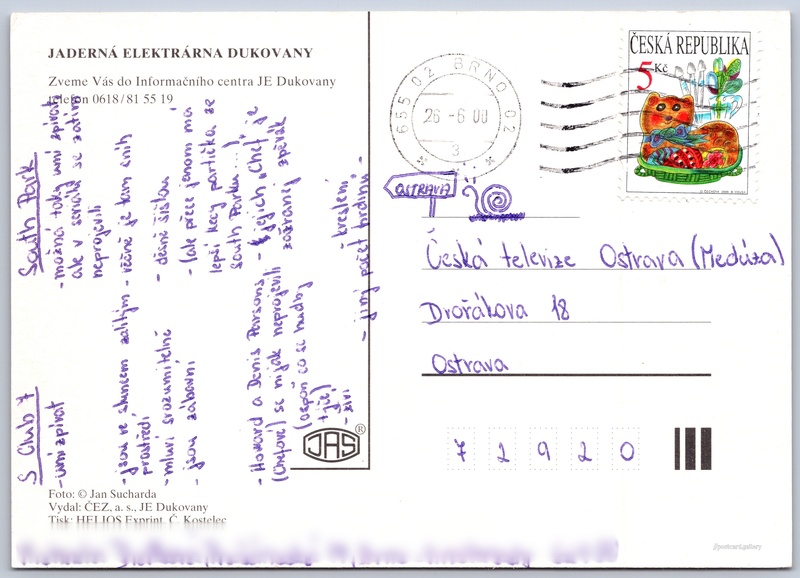 JADERNÁ ELEKTRÁRNA DUKOVANY
Zveme Vás do Informačního centra JE Dukovany
telefon 0618/81 55 19
655 02 BRNO 02
26 -6.00
3
ČESKÁ REPUBLIKA
5 Kč
OSTRAVA
Česká televize Ostrava (Medúza)
Dvořákova 18
Ostrava
7 2 9 2 0
S Club 7
- umí zpívat
- jsou ve sluncem zalitým
prostředí
- mluví srozumitelně
- jsou zábavní
- Howard a Denis Parsons
(Chefové) se nijak neprojevili
(aspoň co se hudby
týče)
- živí
South Park
- možná taky umí zpívat,
ale v seriálu se zatím
neprojevili
- věčně je tam sníh
- děsně šišlou
- (ale přece jenom má
lepší kecy partička ze
South Parku...)
- jejich „Chef“ je
zpěvák
- kreslení
- jiný počet hrdinů -
JAS
®
Foto: © Jan Sucharda
Vydal: ČEZ, a. s., JE Dukovany
Tisk: HELIOS Exprint, Č. Kostelec
//postcard.gallery